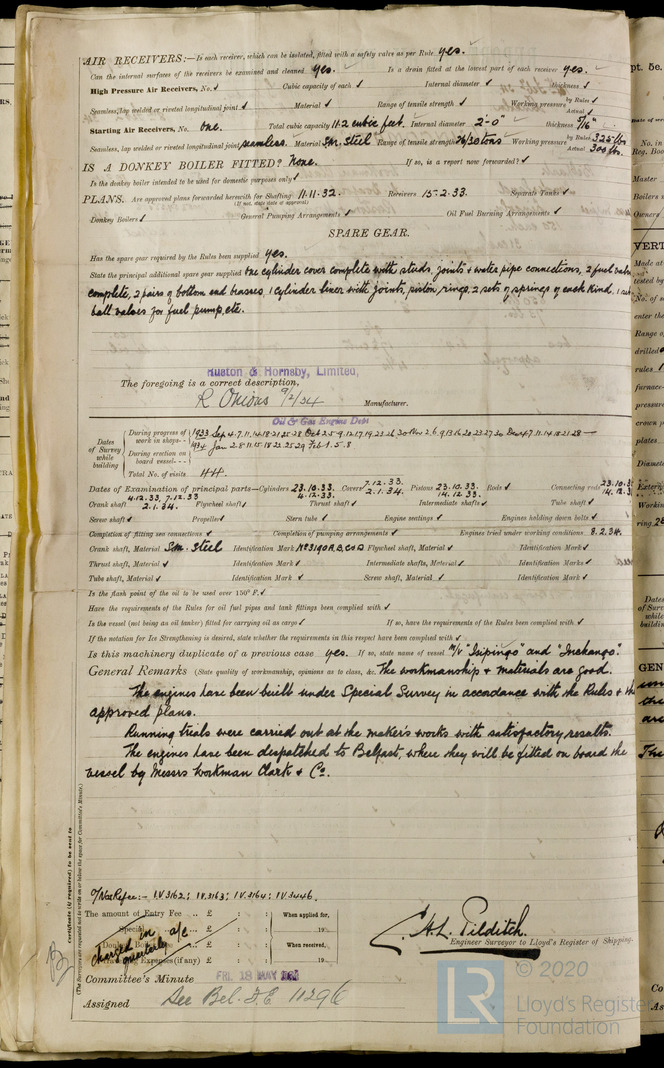 AIR RECEIVERS:—Is each receiver, which can be isolated, fitted with a safety valve as per Rule yes.
Can the internal surfaces of the receivers be examined and cleaned yes. Is a drain fitted at the lowest part of each receiver yes.
High Pressure Air Receivers, No. ✓ Cubic capacity of each ✓ Internal diameter ✓ thickness ✓
Seamless, lap welded or riveted longitudinal joint ✓ Material ✓ Range of tensile strength ✓ Working pressure by Rules ✓ Actual ✓
Starting Air Receivers, No. one. Total cubic capacity 11.2 cubic feet. Internal diameter 2'-0" thickness 5/16"
Seamless, lap welded or riveted longitudinal joint seamless. Material S.M. Steel Range of tensile strength 26/30 tons Working pressure by Rules 325 lbs Actual 300 lbs.
IS A DONKEY BOILER FITTED? None. If so, is a report now forwarded? ✓
Is the donkey boiler intended to be used for domestic purposes only ✓
PLANS. Are approved plans forwarded herewith for Shafting 11.11.32. Receivers 15.2.33. Separate Tanks ✓
(If not, state date of approval)
Donkey Boilers ✓ General Pumping Arrangements ✓ Oil Fuel Burning Arrangements ✓
SPARE GEAR.
Has the spare gear required by the Rules been supplied yes.
State the principal additional spare gear supplied One cylinder cover complete with studs, joints & water pipe connections, 2 fuel valves
complete, 2 pairs of bottom end brasses, 1 cylinder liner with joints, piston, rings, 2 sets of springs of each kind, 1 set
ball valves for fuel pump, etc.
Ruston & Hornsby, Limited,
The foregoing is a correct description,
R Onions 9/2/34 Manufacturer.
Oil & Gas Engine Dept
Dates of Survey while building
During progress of work in shops - - 1933 Sep 4.7.11.14.18.21.25.28 Oct 2.5.9.12.17.19.23.26.30 Nov 2.6.9.13.16.20.23.27.30 Dec 4.7.11.14.18.21.28 —
During erection on board vessel - - - 1934 Jan 2.8.11.15.18.23.25.29 Feb 1.5.8
Total No. of visits 44.
Dates of Examination of principal parts—Cylinders 23.10.33. 4.12.33. Covers 7.12.33. 2.1.34. Pistons 23.10.33. 14.12.33. Rods ✓ Connecting rods 23.10.33 14.12.3
Crank shaft 4.12.33, 7.12.33 2.1.34. Flywheel shaft ✓ Thrust shaft ✓ Intermediate shafts ✓ Tube shaft ✓
Screw shaft ✓ Propeller ✓ Stern tube ✓ Engine seatings ✓ Engines holding down bolts ✓
Completion of fitting sea connections ✓ Completion of pumping arrangements ✓ Engines tried under working conditions 8.2.34.
Crank shaft, Material S.M. Steel Identification Mark Flywheel shaft, Material ✓ Identification Mark ✓
Thrust shaft, Material ✓ Identification Mark ✓ Intermediate shafts, Material ✓ Identification Marks ✓
Tube shaft, Material ✓ Identification Mark ✓ Screw shaft, Material ✓ Identification Mark ✓
Is the flash point of the oil to be used over 150° F. ✓
Have the requirements of the Rules for oil fuel pipes and tank fittings been complied with ✓
Is the vessel (not being an oil tanker) fitted for carrying oil as cargo ✓ If so, have the requirements of the Rules been complied with ✓
If the notation for Ice Strengthening is desired, state whether the requirements in this respect have been complied with ✓
Is this machinery duplicate of a previous case yes. If so, state name of vessel M/V "Isipingo" and "Inchanga".
General Remarks (State quality of workmanship, opinions as to class, &c. The workmanship & materials are good.
The engines have been built under Special Survey in accordance with the Rules & the
approved plans.
Running trials were carried out at the maker's works with satisfactory results.
The engines have been despatched to Belfast, where they will be fitted on board the
vessel by Messrs Workman Clark & Co.
I.V.3162; I.V.3163; I.V.3164; I.V.3446.
The amount of Entry Fee .. £ : : When applied for,
Special .. £ : : 19
Donkey Boiler .. £ : : When received,
Expenses (if any) £ : : 19
charged in a/c quarterly
C.H.L. Pilditch.
Engineer Surveyor to Lloyd's Register of Shipping.
Committee's Minute FRI. 18 MAY 1934
Assigned See Bel. F.E. 11296
Certificate (if required) to be sent to
(The Surveyors are requested not to write on or below the space for Committee's Minute.)
© 2020
LR Lloyd's Register
Foundation